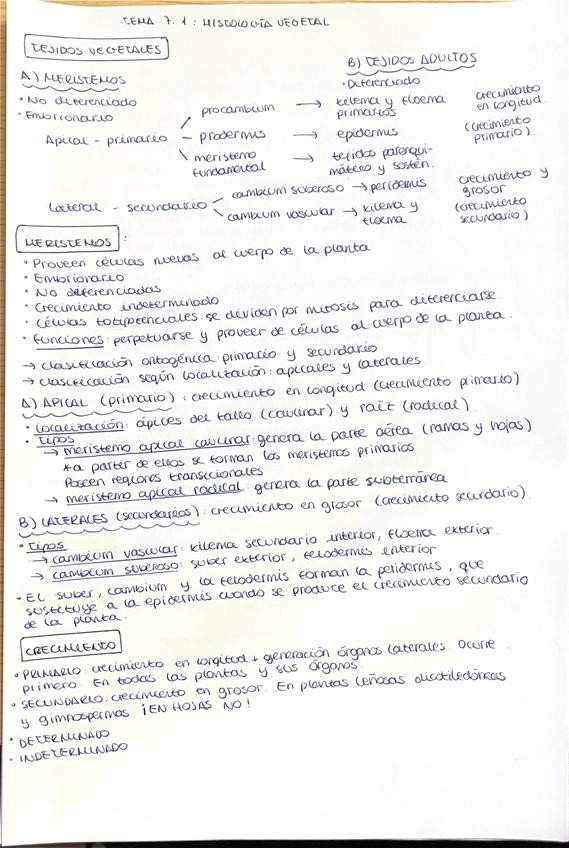 TEMA 7.1: HISTOLOGÍA VEGETAL
TEJIDOS VEGETALES
A) MERISTEMOS
· No diferenciado
· Embrionario
B) TEJIDOS ADULTOS
· Diferenciado
Apical - primario
procambium → xilema y floema primarios
prodermis → epidermis
meristemo fundamental → tejidos parenquimático y sostén.
crecimiento en longitud. (crecimiento primario).
Lateral - secundario
cambium suberoso → peridermis
cambium vascular → xilema y floema
crecimiento y grosor (crecimiento secundario)
MERISTEMOS:
· Proveen células nuevas al cuerpo de la planta
· Embrionario
· No diferenciadas
· Crecimiento indeterminado
· Células totipotenciales: se dividen por mitosis para diferenciarse.
· Funciones: perpetuarse y proveer de células al cuerpo de la planta.
→ Clasificación ontogénica: primario y secundario
→ Clasificación según localización: apicales y laterales
A) APICAL (primario): crecimiento en longitud (crecimiento primario)
· Localización: ápices del tallo (caulinar) y raíz (radical)
· Tipos
→ meristemo apical caulinar: genera la parte aérea (ramas y hojas)
* a partir de ellos se forman los meristemos primarios
Poseen regiones transicionales
→ meristemo apical radical: genera la parte subterránea
B) LATERALES (secundarios): crecimiento en grosor (crecimiento secundario).
· Tipos
→ cambium vascular: xilema secundario interior, floema exterior.
→ cambium suberoso: suber exterior, felodermis interior
· El suber, cambium y la felodermis forman la peridermis, que
sustituye a la epidermis cuando se produce el crecimiento secundario
de la planta.
CRECIMIENTO
· PRIMARIO: crecimiento en longitud + generación órganos laterales. Ocurre
primero. En todas las plantas y sus órganos.
· SECUNDARIO: crecimiento en grosor. En plantas leñosas dicotiledóneas
y gimnospermas ¡EN HOJAS NO!
· DETERMINADO
· INDETERMINADO